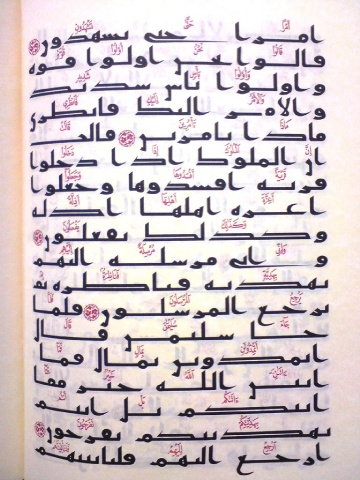 امرا حتى تشهدون
قالوا نحن اولوا قوة
واولوا باس شديد
والامر اليك فانظرى
ماذا تامرين قالت
ان الملوك اذا دخلوا
قرية افسدوها وجعلوا
اعزة اهلها اذلة
وكذلك يفعلون
وانى مرسلة اليهم
بهدية فناظرة بم
يرجع المرسلون فلما
جا سليمن قال
اتمدونن بمال فما
اتين الله خير مما
اتيكم بل انتم
بهديتكم تفرحون
ارجع اليهم فلناتينهم